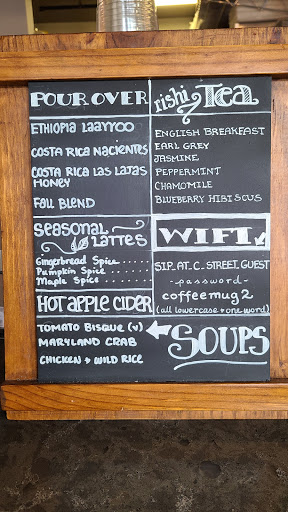 POUR OVER
ETHIOPIA LAAYYOO
COSTA RICA NACIENTES
COSTA RICA LAS LAJAS
HONEY
FALL BLEND
rishi Tea
ENGLISH BREAKFAST
EARL GREY
JASMINE
PEPPERMINT
CHAMOMILE
BLUEBERRY HIBISCUS
SEASONAL
LATTES
Gingerbread Spice .....
Pumpkin Spice ....
Maple Spice .....
HOT APPLE CIDER
WIFI
SIP_AT_C_STREET_GUEST
-password-
coffeemug2
(all lowercase + one word)
TOMATO BISQUE (V)
MARYLAND CRAB
CHICKEN + WILD RICE
SOUPS